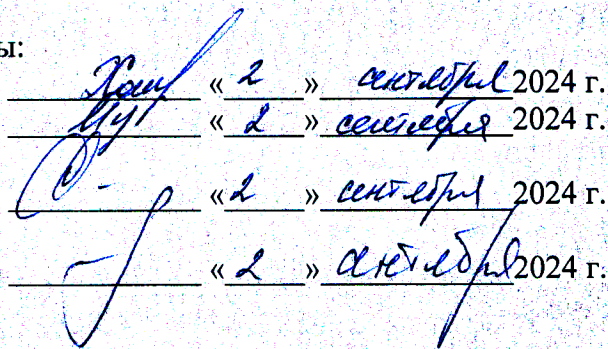 ы:
« 2 » сентября 2024 г.
« 2 » сентября 2024 г.
« 2 » сентября 2024 г.
« 2 » сентября 2024 г.